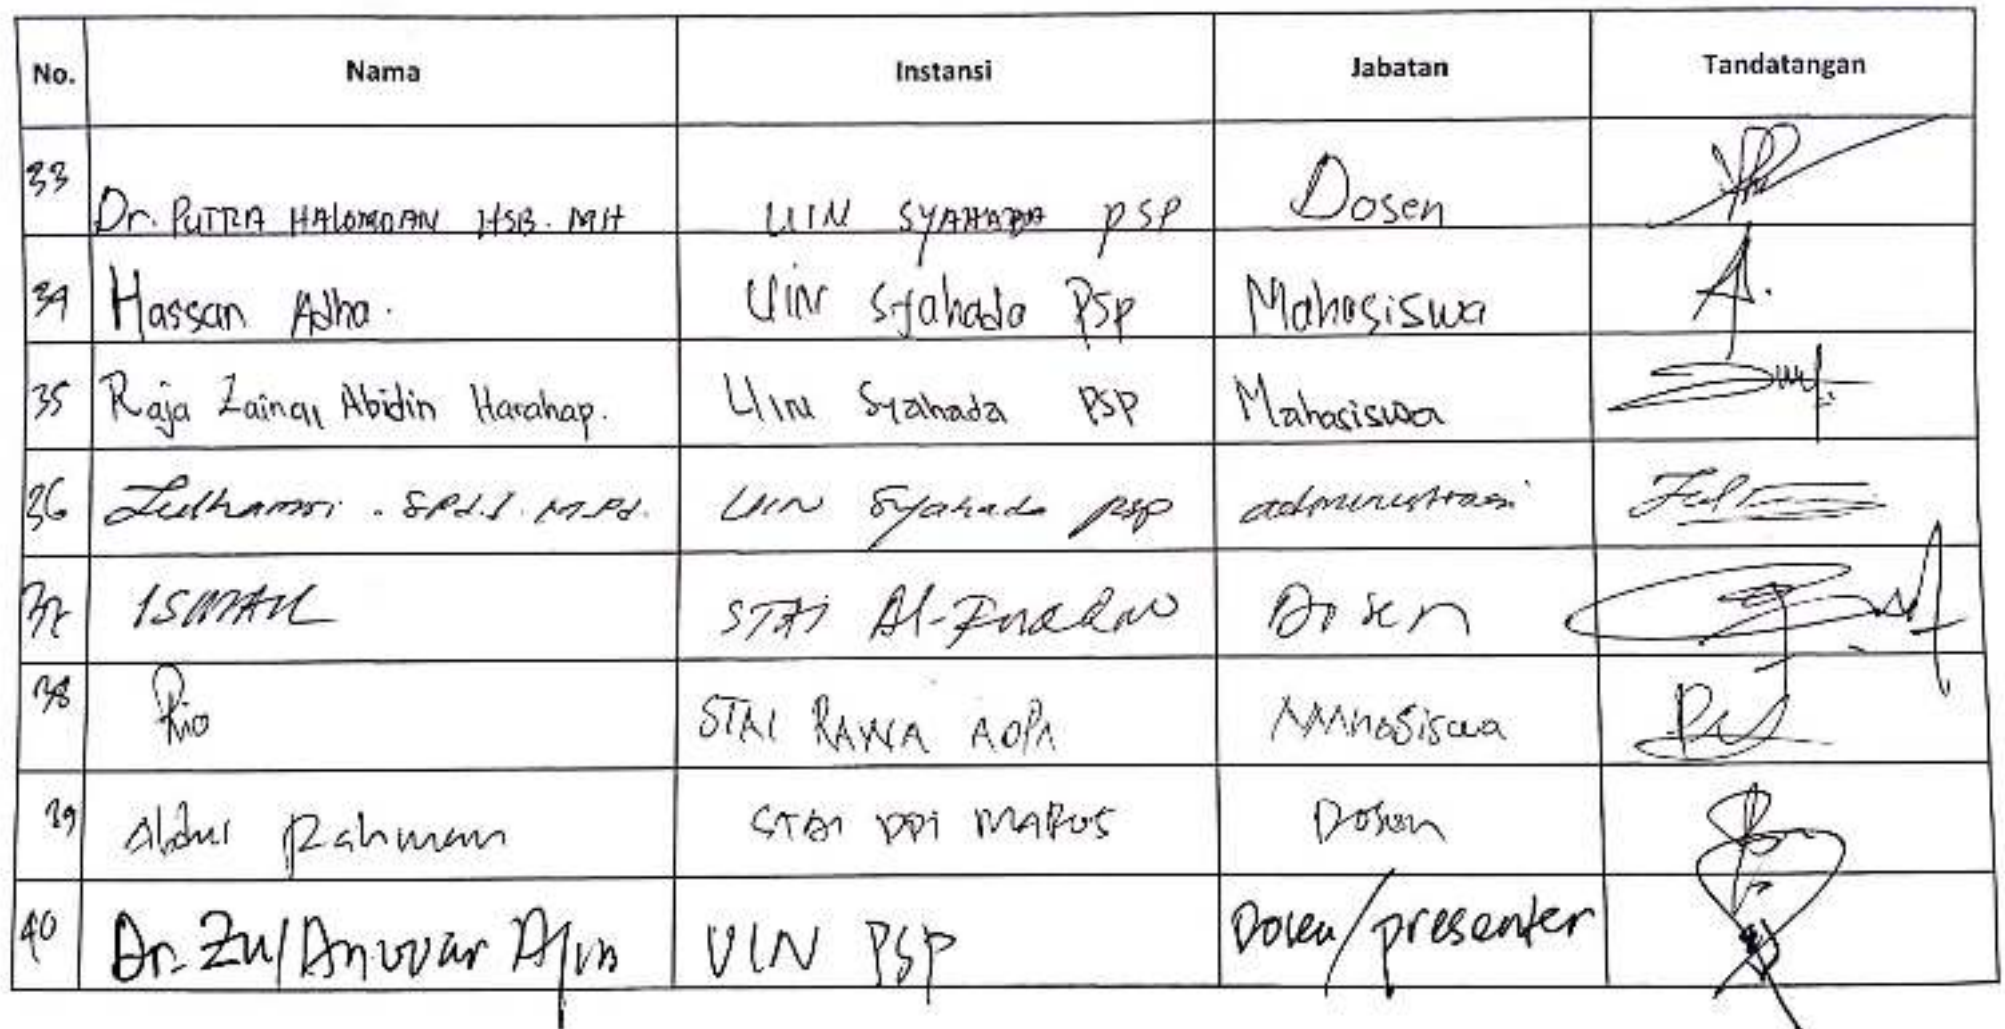 No. Nama Instansi Jabatan Tandatangan
33 Dr. PUTRA HALOMOAN HSB. MH UIN SYAHADA PSP Dosen
34 Hassan Adha. UIN Syahada PSP Mahasiswa
35 Raja Zainal Abidin Harahap. UIN Syahada PSP Mahasiswa
36 Zulhammi. S.Pd.I. M.Pd. UIN Syahada PSP administrasi
37 ISMAIL STAI Al-Furqan Dosen
38 Rio STAI RAWA AOPA Mahasiswa
39 Abdul Rahman STAI DDI MAROS Dosen
40 Dr. Zul Anwar Ajim UIN PSP Dosen/presenter